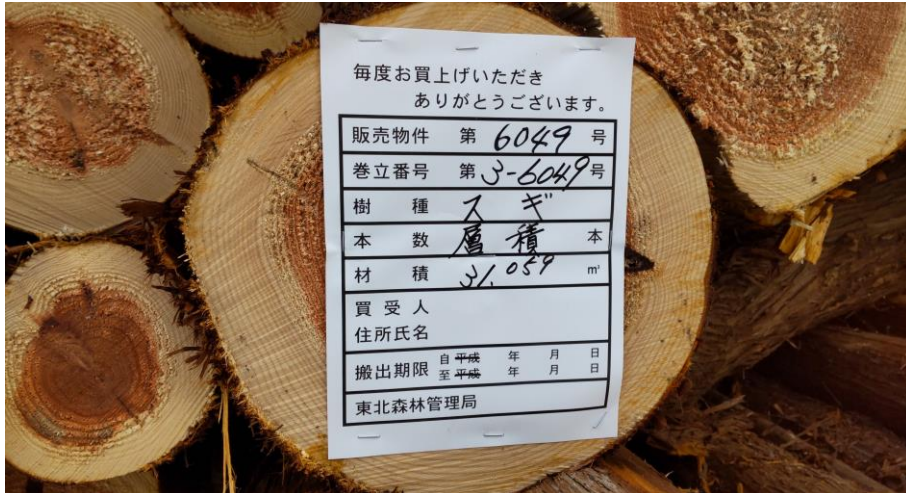 毎度お買上げいただき
ありがとうございます。
販売物件 第 6049 号
巻立番号 第 3-6049 号
樹種 スギ
本数 層積 本
材積 31.059 m³
買受人
住所氏名
搬出期限 自 平成 年 月 日
至 平成 年 月 日
東北森林管理局